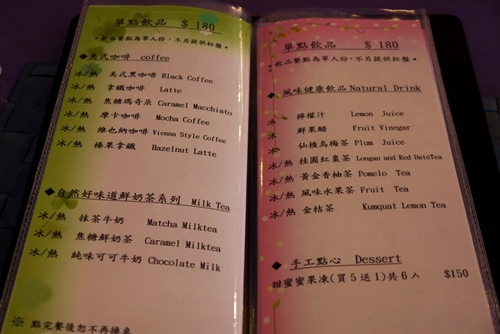 單點飲品 $ 180
*飲品餐點為單人份，不另提供杯盤*
◆美式咖啡 coffee
冰/熱 美式黑咖啡 Black Coffee
冰/熱 拿鐵咖啡 Latte
冰/熱 焦糖瑪奇朵 Caramel Macchiato
冰/熱 摩卡咖啡 Mocha Coffee
冰/熱 維也納咖啡 Vienna Style Coffee
冰/熱 榛果拿鐵 Hazelnut Latte
◆自然好味道鮮奶茶系列 Milk Tea
冰/熱 抹茶牛奶 Matcha Milktea
冰/熱 焦糖鮮奶茶 Caramel Milktea
冰/熱 純味可可牛奶 Chocolate Milk
※ 點完餐後恕不再換桌
單點飲品 $ 180
*飲品餐點為單人份，不另提供杯盤*
◆風味健康飲品 Natural Drink
冰 檸檬汁 Lemon Juice
冰 鮮果醋 Fruit Vinegar
冰 仙楂烏梅茶 Plum Juice
冰/熱 桂圓紅棗茶 Longan and Red DateTea
冰/熱 黃金香柚茶 Pomelo Tea
冰/熱 風味水果茶 Fruit Tea
冰/熱 金桔茶 Kumquat Lemon Tea
◆ 手工點心 Dessert
甜蜜蜜果凍(買5送1)共6入 $150